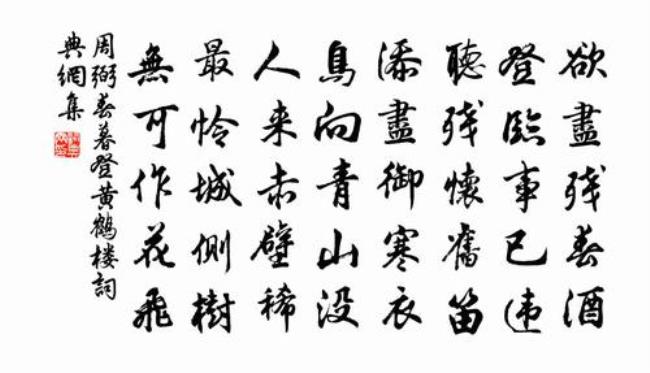 欲盡残春酒
登臨事已违
聽残懷舊笛
添盡御寒衣
鳥向青山没
人来赤壁稀
最怜城側樹
無可作花飛
周弼春暮登黄鶴楼詞
典網集